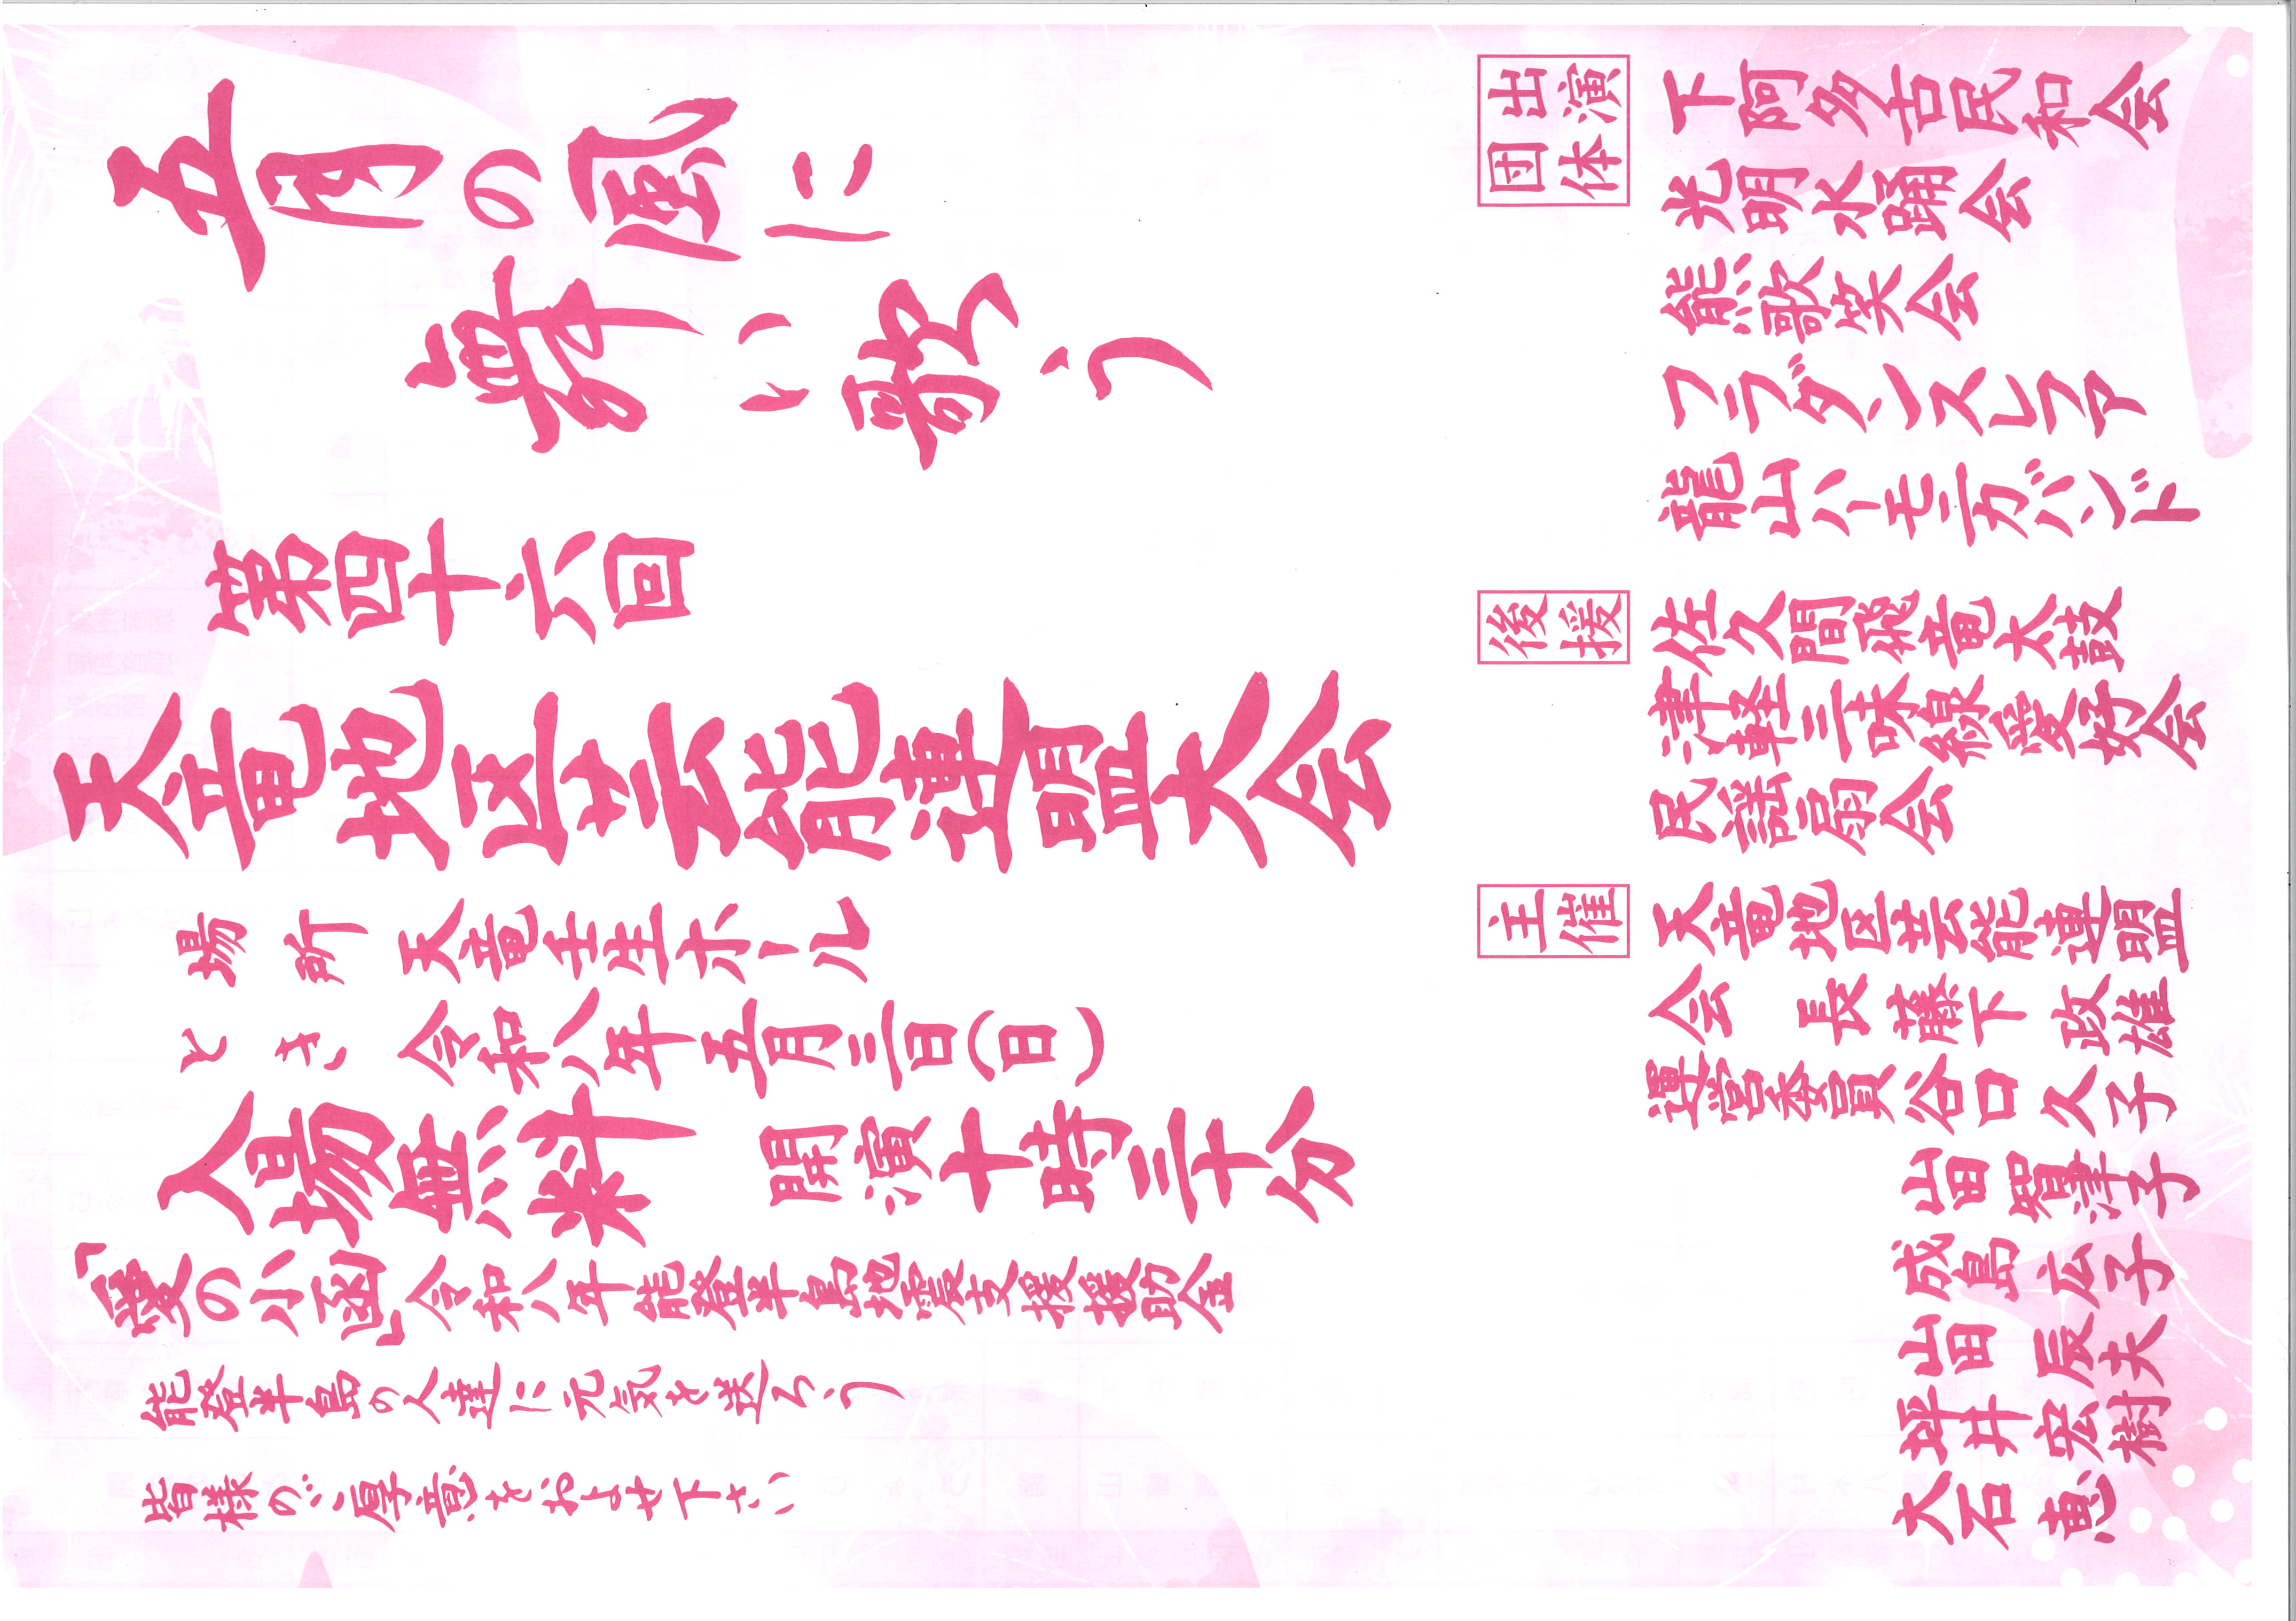 五月の風に
舞い歌う
第四十六回
天竜地区芸能連盟大会
場所 天竜壬生ホール
とき 令和八年五月三日(日)
入場無料 開演十時三十分
「愛の小函」令和八年能登半島地震支援援助金
能登半島の人達に元気を送ろう
皆様のご厚意をおよせ下さい
出演団体
下阿多古民和会
光明水踊会
熊歌笑会
フラダンスレファ
龍山ハーモニカバンド
後援
佐久間飛竜太鼓
津軽三味線愛好会
民謡扇会
主催
天竜地区芸能連盟
会長 藤下政雄
運営委員 谷口久子
山田智津子
成島広子
山田辰夫
坪井宏樹
大石恵